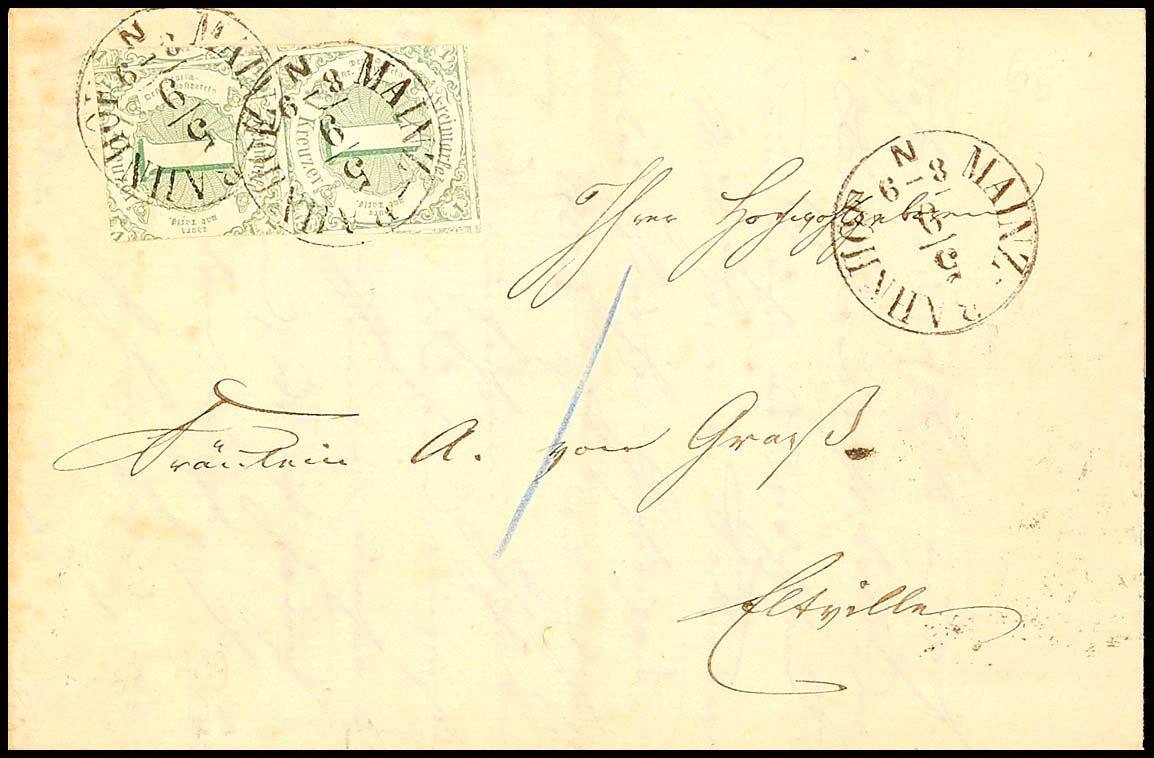 MAINZ BAHNHOF
N 6–8
6/5
MAINZ BAHNHOF
N 6–8
6/5
1 Kreuzer
Freimarke
1 Kreuzer
Freimarke
MAINZ BAHNHOF
N 6–8
6/5
Ihrer Hochwohlgeboren
Fräulein A. von Graß.
Eltville